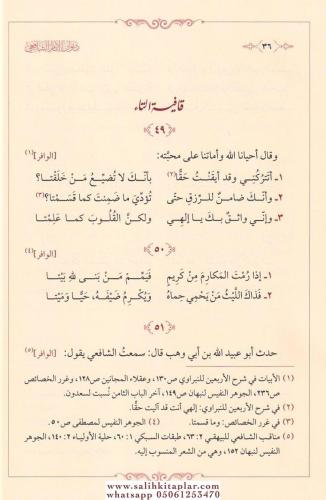 ديوان الإمام الشافعي
٣٦
قافية التاء
٤٩
وقال أحيانا الله وأماتنا على محبَّته: [الوافر](١)
١ـ أتتركُني وقد أيقَنْتُ حقًّا(٢) بأنكَ لا تُضيِّعُ مَنْ خَلَقْتَا؟
٢ـ وأنكَ ضامنٌ للرِّزقِ حتّى تُؤدِّيَ ما ضَمِنْتَ كما قَسَمْتَا؟(٣)
٣ـ وإنّي واثقٌ بكَ يا إلهي ولكنَّ القُلُوبَ كما عَلِمْتَا
٥٠
[الوافر](٤)
١ـ إذا رُمْتَ المَكارِمَ مِنْ كَرِيمٍ فَيَمِّمْ مَنْ بَنَى للهِ بَيْتَا
٢ـ فَذَاكَ اللَّيْثُ مَنْ يَحْمِي حِمَاهُ ويُكْرِمُ ضَيْفَهُ، حَيًّا ومَيْتَا
٥١
حدث أبو عبيد الله بن أبي وهب قال: سمعتُ الشافعي يقول: [الوافر](٥)
(١) الأبيات في شرح الأربعين للنبراوي ص١٣٠، وعقلاء المجانين ص١٢٨، وغرر الخصائص
ص٢٣٦، الجوهر النفيس لنبهان ص١٤٩، آخر الباب الثامن نُسبت لسعدون.
(٢) في شرح الأربعين للنبراوي: إلهي أنت قد آليت حقًّا.
(٣) في غرر الخصائص: وما قسمتا. (٤) الجوهر النفيس لمصطفى ص٥٠.
(٥) مناقب الشافعي للبيهقي ٢: ٦٣، طبقات السبكي ١: ٦٠، حلية الأولياء ٢: ١٤٠، الجوهر
النفيس لنبهان ١٥٢، وهي من الشعر المنسوب إليه.
www.salihkitaplar.com
whatsapp 05061253470